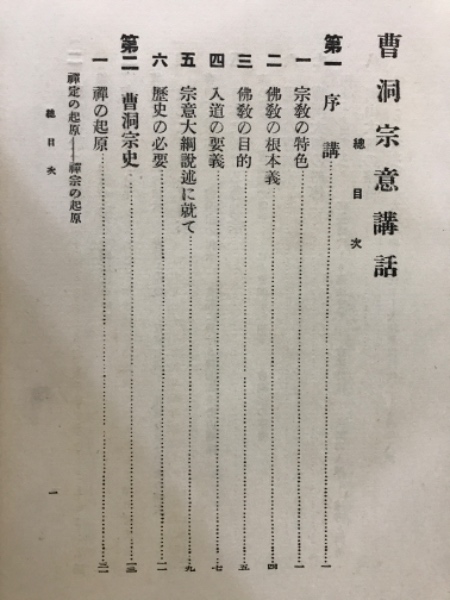 曹洞宗意講話
總目次
第一 序講……一
一 宗敎の特色……一
二 佛敎の根本義……四
三 佛敎の目的……五
四 入道の要義……七
五 宗意大綱說述に就て……九
六 歷史の必要……一一
第二 曹洞宗史……一三
一 禪の起原……三一
禪定の起原――禪宗の起原
總目次
一